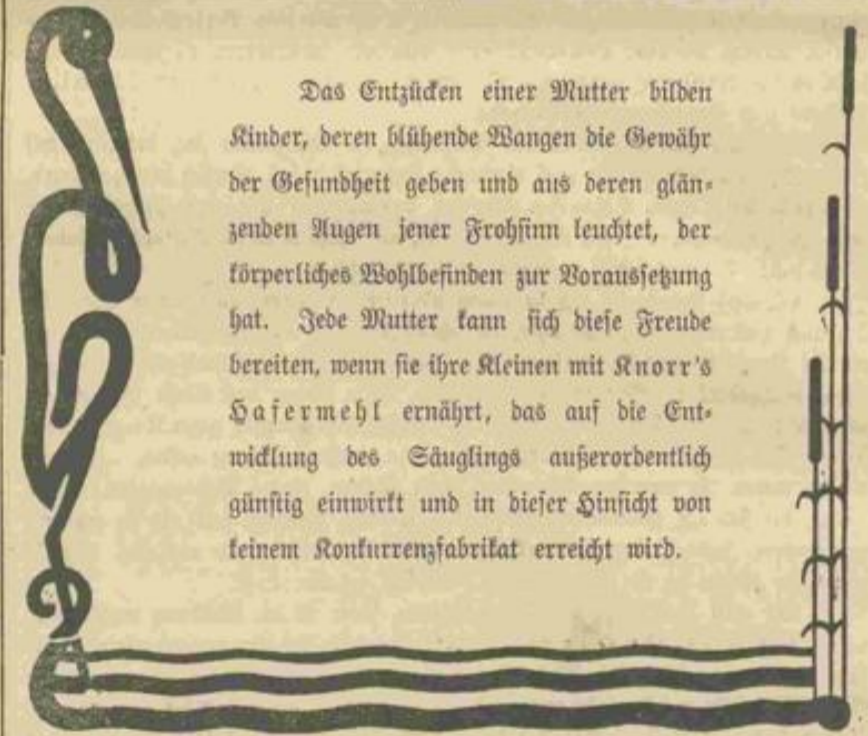 Das Entzücken einer Mutter bilden
Kinder, deren blühende Wangen die Gewähr
der Gesundheit geben und aus deren glän-
zenden Augen jener Frohsinn leuchtet, der
körperliches Wohlbefinden zur Voraussetzung
hat. Jede Mutter kann sich diese Freude
bereiten, wenn sie ihre Kleinen mit Knorr's
Hafermehl ernährt, das auf die Ent-
wicklung des Säuglings außerordentlich
günstig einwirkt und in dieser Hinsicht von
keinem Konkurrenzfabrikat erreicht wird.